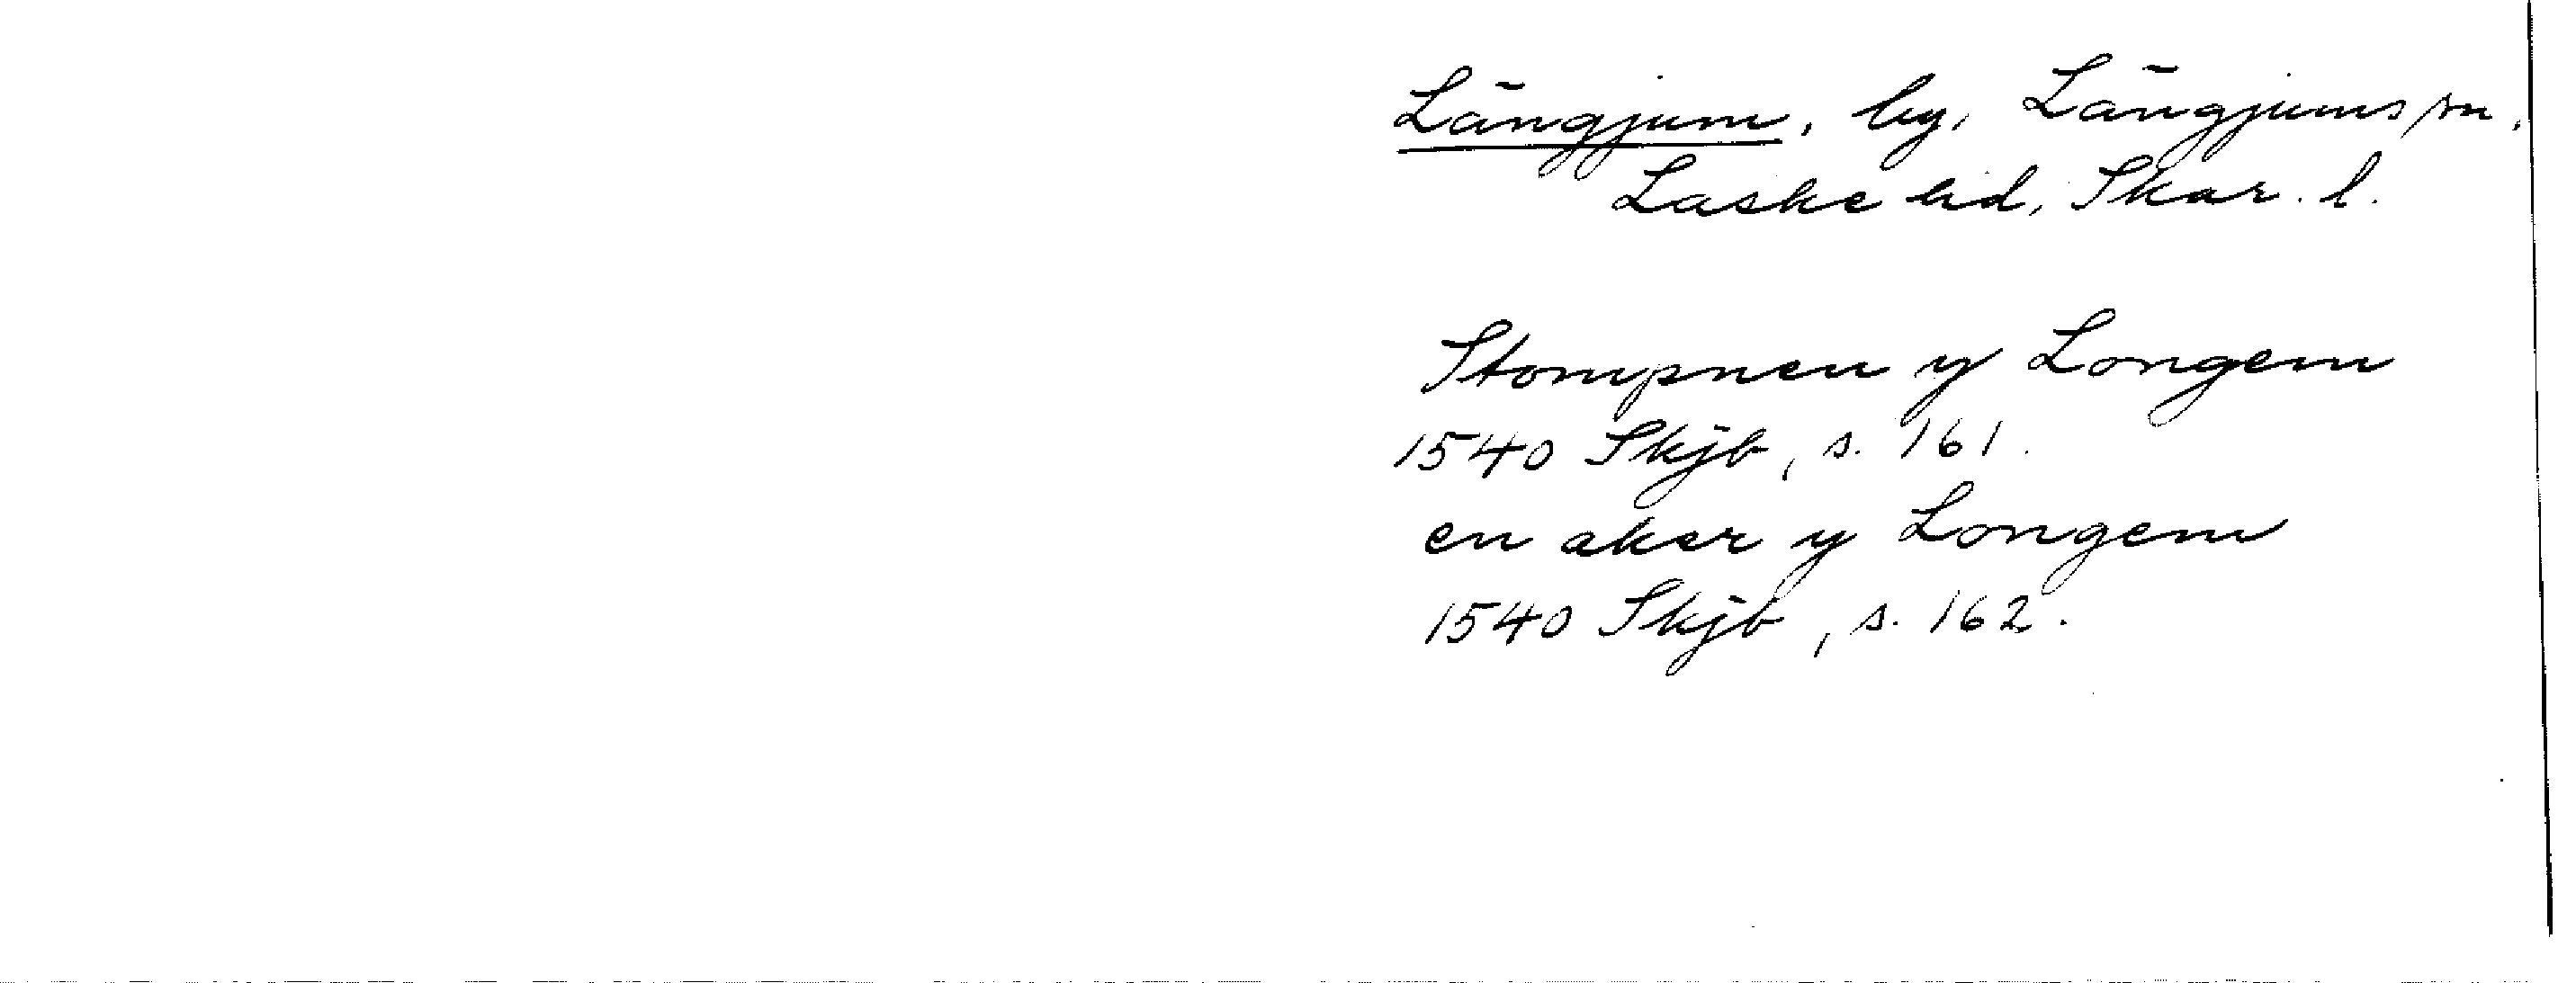 Långjum, by, Långjums sn,
Laske hd, Skar. l.
Stompnen y Longem
1540 Skjb, s. 161.
en aker y Longem
1540 Skjb, s. 162.